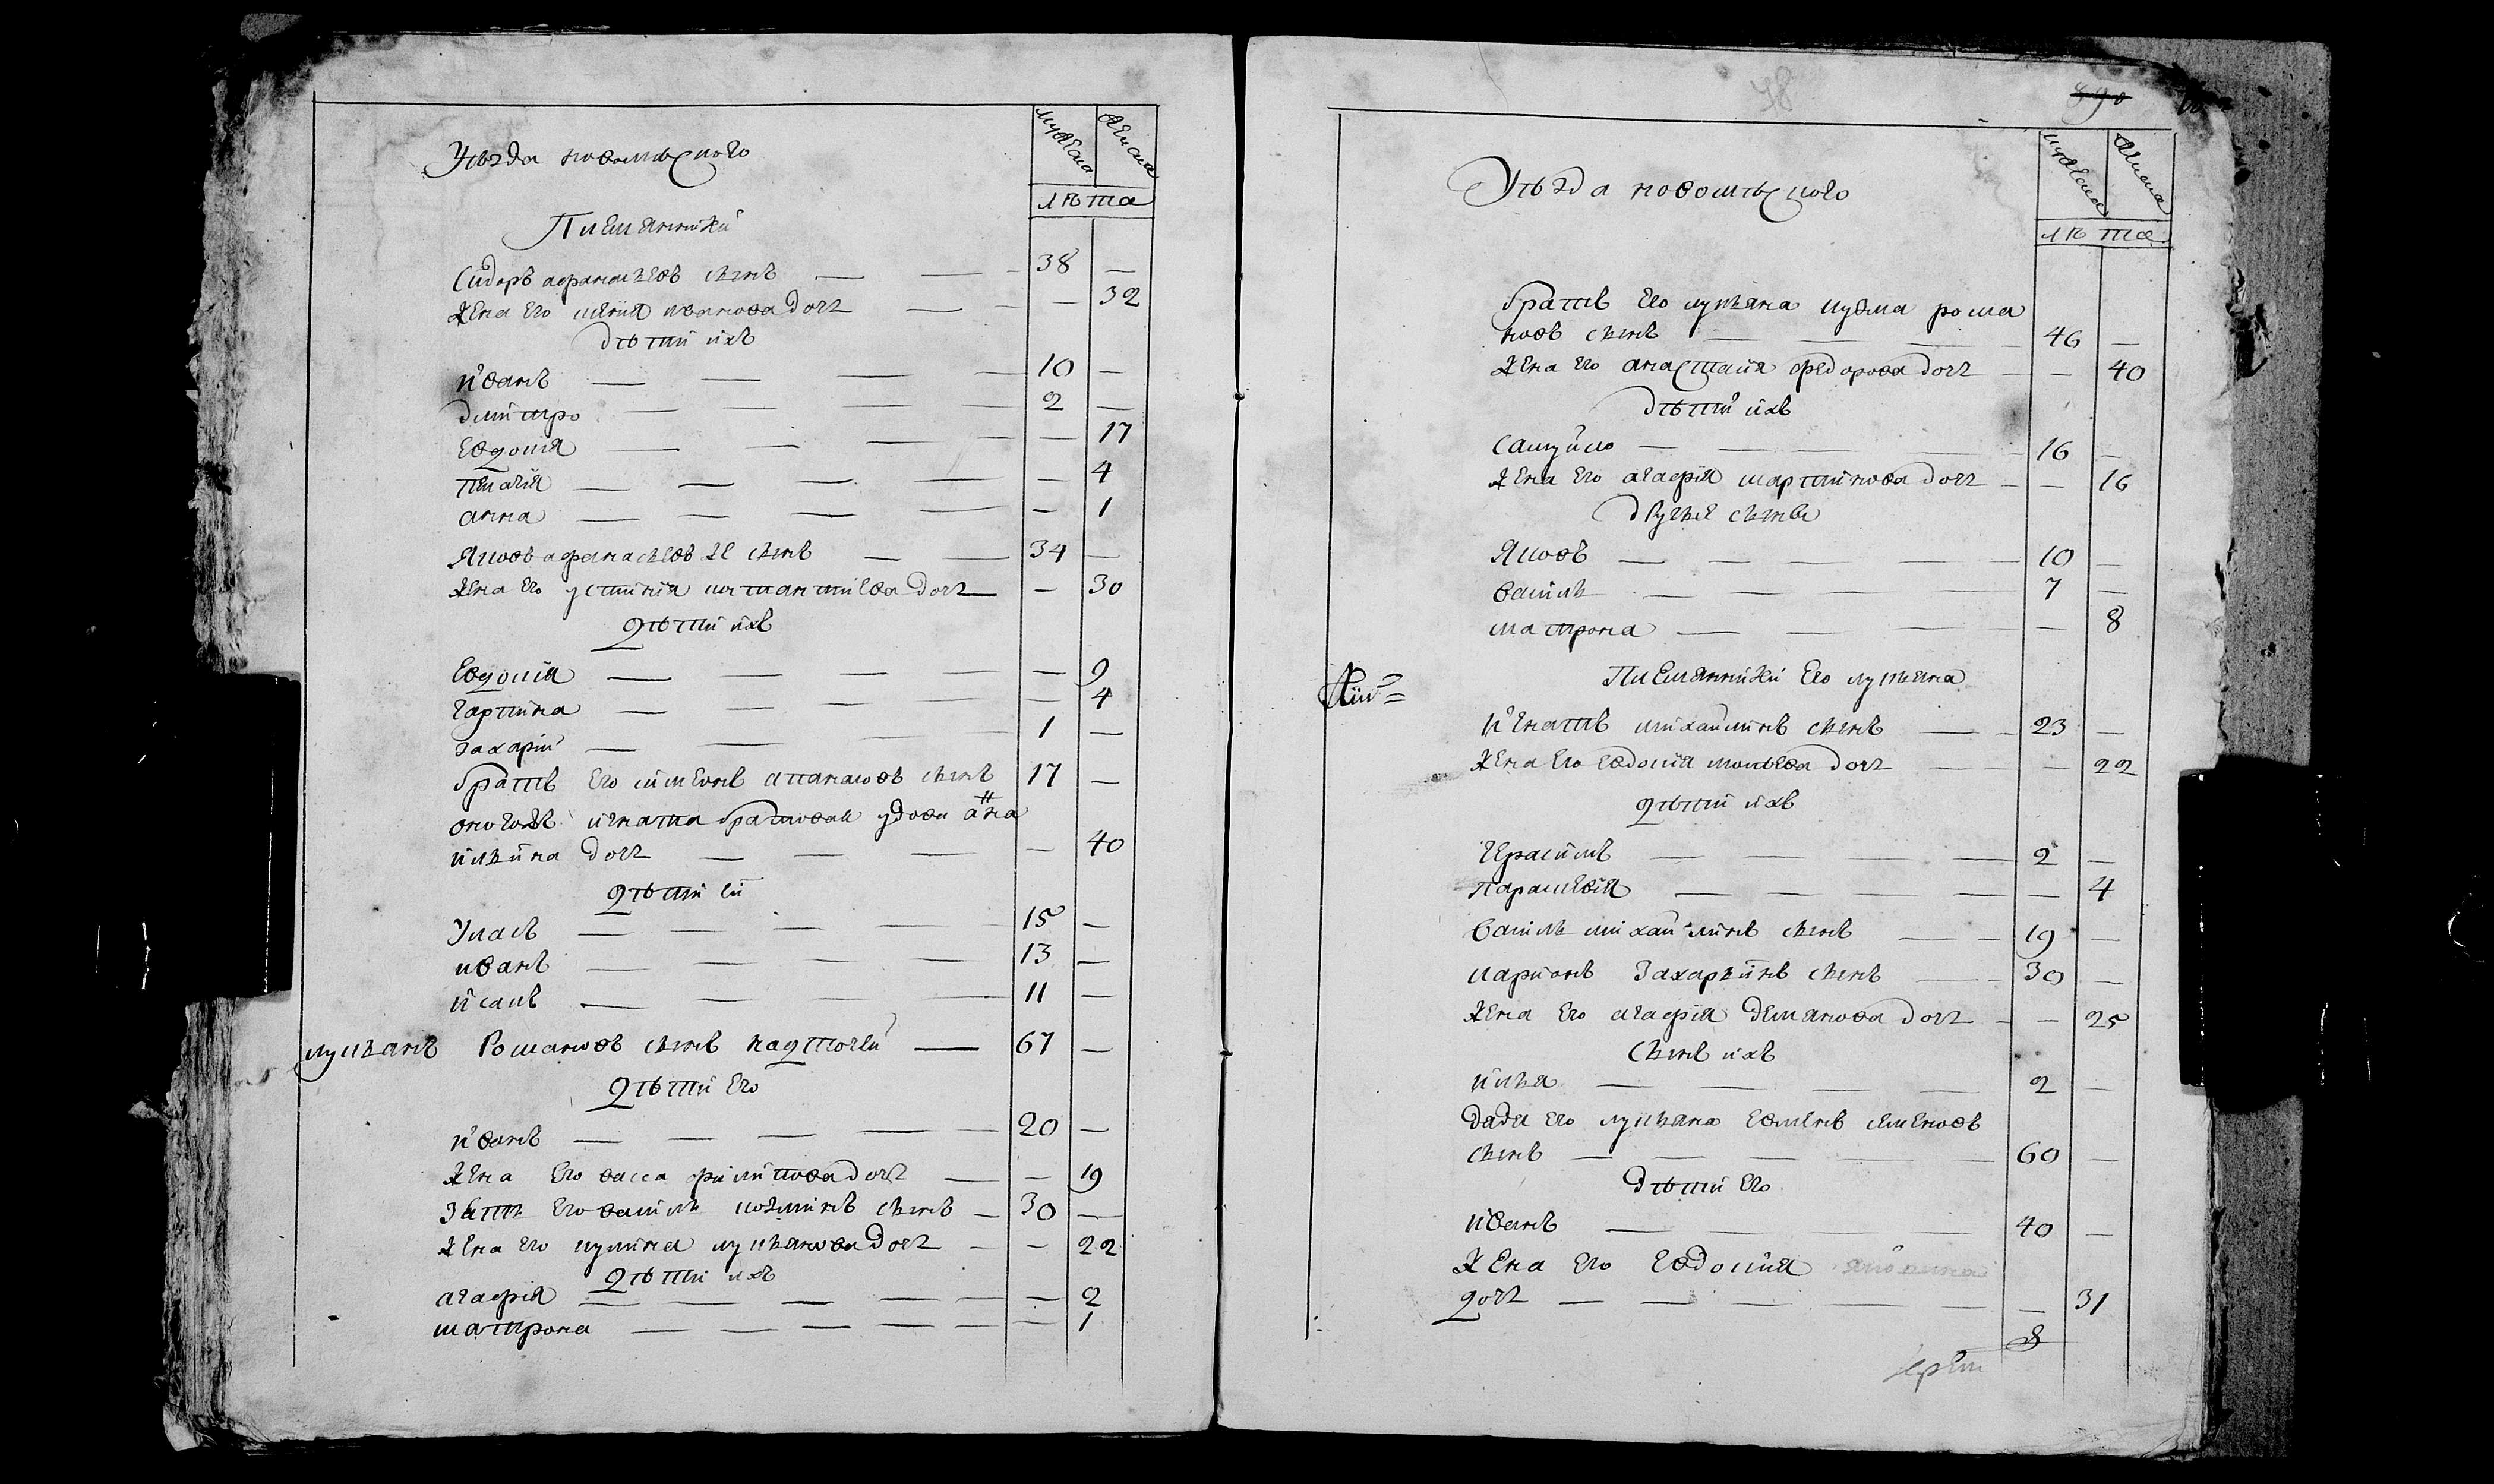 мужеска
женска
лѣта
Уѣзда новомѣского
Племянники
Сидоръ афанасьевъ сынъ — 38 —
жена его Иванова дочь — 32
дѣти ихъ
иванъ — 10 —
дмитро — 2 —
Евдокия — 17
пелагия — 4
анна — 1
Яковъ афанасьевъ же сынъ — 34 —
жена его устиния дочь — 30
дѣти ихъ
Евдокия — 9
гарпина — 4
захарий — 1 —
братъ его симеонъ апанасовъ сынъ 17 —
оного игната братовая удова анна
илина дочь — 40
дѣти ей
Уласъ — 15 —
иванъ — 13 —
исакъ — 11 —
лукянъ Романовъ сынъ — 67 —
дѣти его
иванъ — 20 —
жена его васса филипова дочь — 19
зять его василь козминъ сынъ — 30 —
жена его кулина лукянова дочь — 22
дѣти ихъ
агафия — 2
матрона — 1
78
890
мужеска
женска
лѣта
Уѣзда новомѣского
братъ его лукяна кузма рома
новъ сынъ — 46 —
жена его анастасия федорова дочь — 40
дѣти ихъ
самуило — 16 —
жена его агафия мартинова дочь — 16
другие сыны
Яковъ — 10 —
василь — 7 —
матрона — 8
Племянники его лукяна
игнатъ михайлинъ сынъ — 23 —
жена его евдокия дочь — 22
дѣти ихъ
герасимъ — 2 —
парасковия — 4
василь михайлинъ сынъ — 19 —
ларионъ Захарьинъ сынъ — 30 —
жена его агафия демянова дочь — 25
сынъ ихъ
илья — 2 —
дядя его лукяна семеновъ
сынъ — 60 —
дѣти его
иванъ — 40 —
жена его евдокия
дочь — 31
8